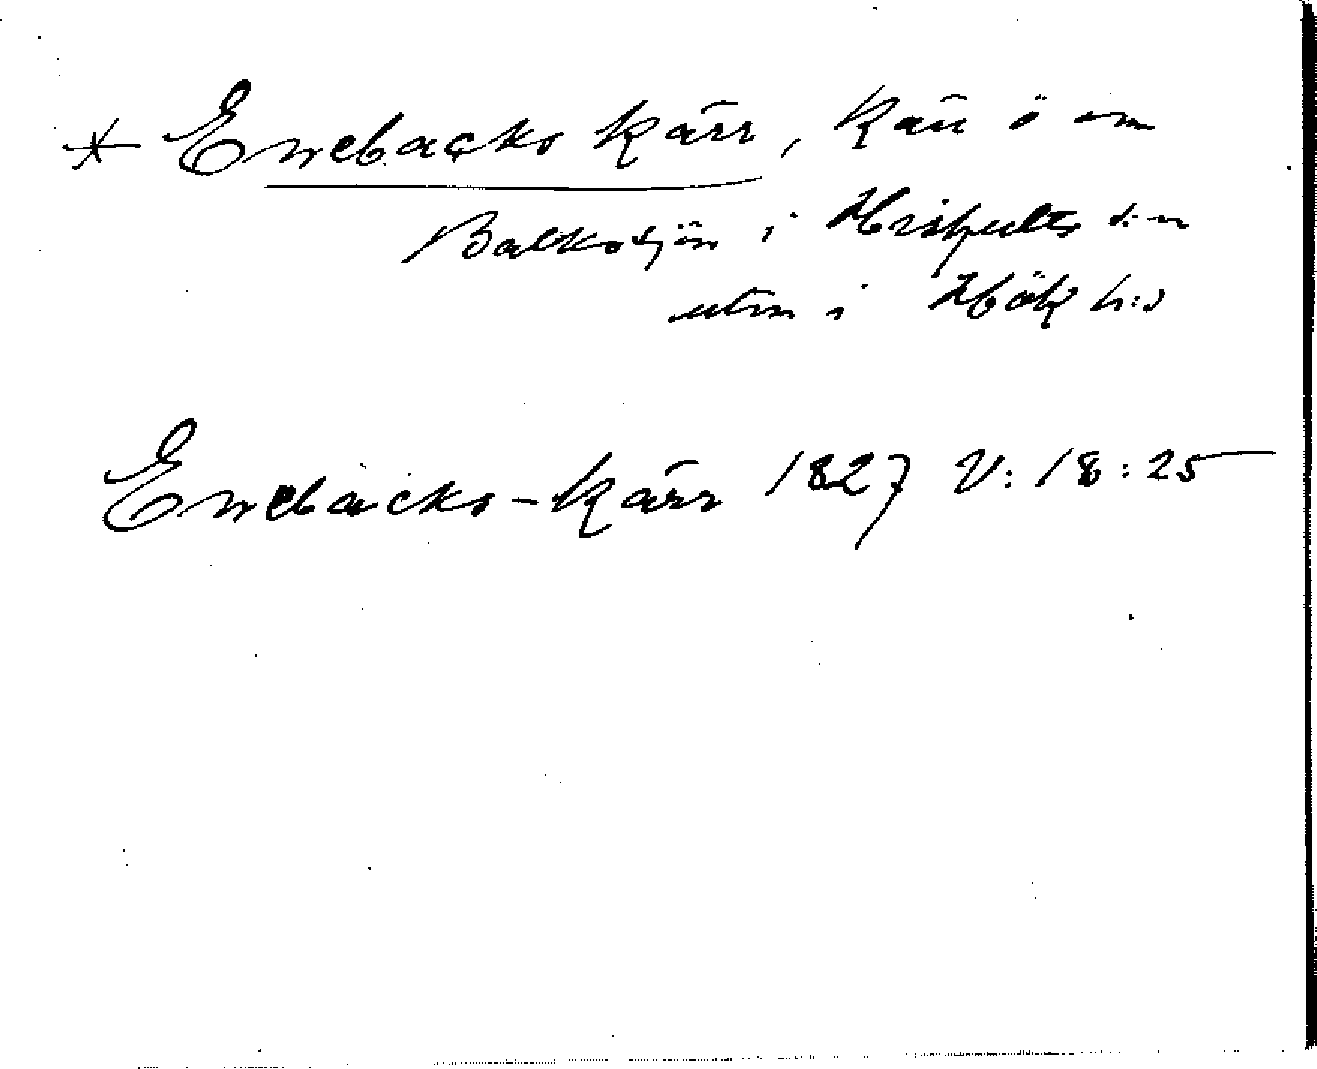 * Enebacks kärr, kärr ö om
Balkasjön i Hishults s:n
utm i Hök h:d
Enebacks-kärr 1827 V: 18:25